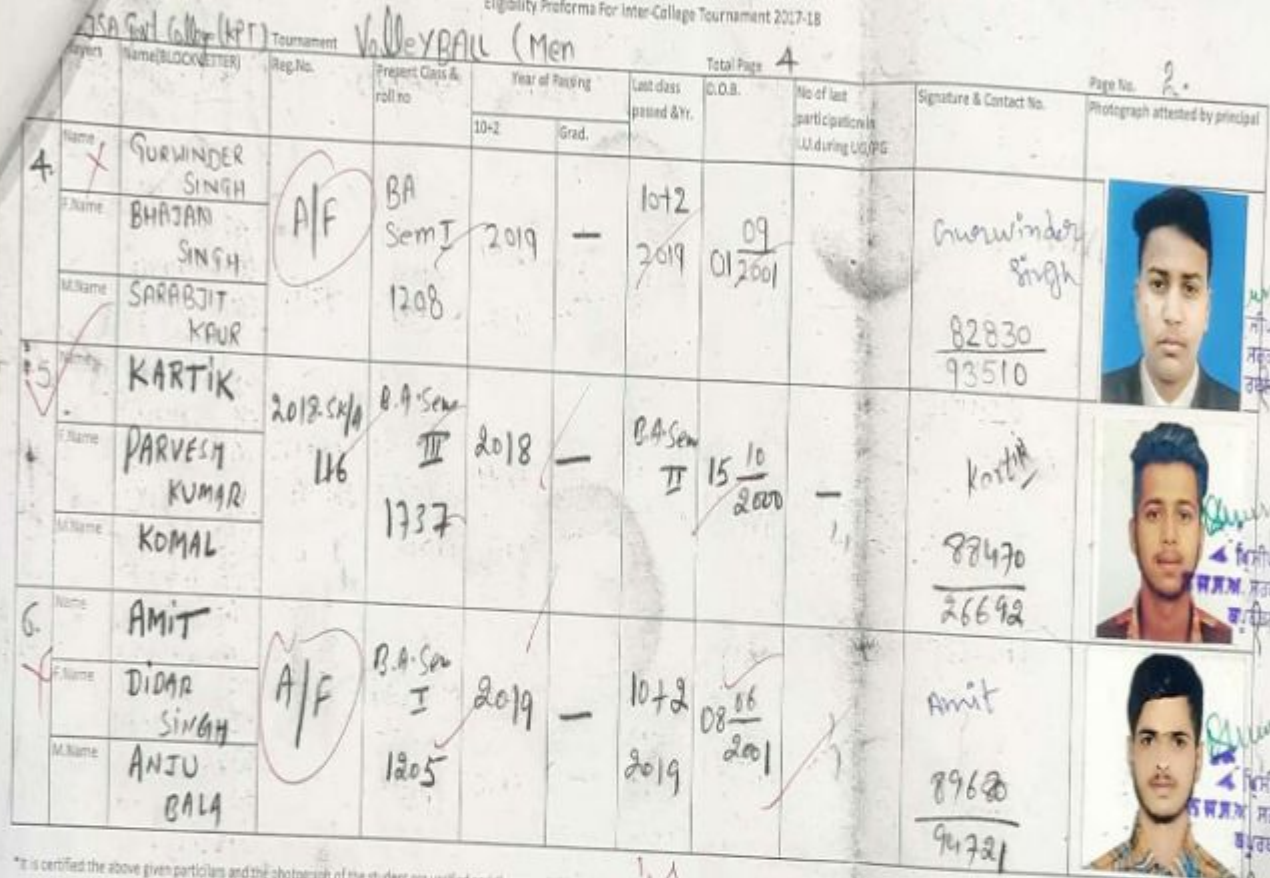 Eligibility Proforma For Inter-College Tournament 2017-18
JSA Govt College (KPT) Tournament VolleYBALL (Men
Total Page 4
Page No. 2.
Name(BLOCKLETTER)
Reg.No.
Present Class &
roll no
Year of Passing
10+2
Grad.
Last class
passed &Yr.
D.O.B.
No of last
participation in
I.U.during UG/PG
Signature & Contact No.
Photograph attested by principal
4.
Name
GURWINDER
SINGH
F.Name
BHAJAN
SINGH
M.Name
SARABJIT
KAUR
A/F
BA
Sem I
1208
2019
—
10+2
2019
01 09
2001
Gurwinder
Singh
82830
93510
5
Name
KARTIK
F.Name
PARVESH
KUMAR
M.Name
KOMAL
2018.SK/A
46
B.A.Sem
III
1737
2018
—
B.A.Sem
II
15 10
2000
—
Kartik
88470
26692
6.
Name
AMIT
F.Name
DIDAR
SINGH
M.Name
ANJU
BALA
A/F
B.A.Sem
I
1205
2019
—
10+2
2019
08 06
2001
Amit
89680
94721
*It is certified the above given particilars and the photograph of the student are verified